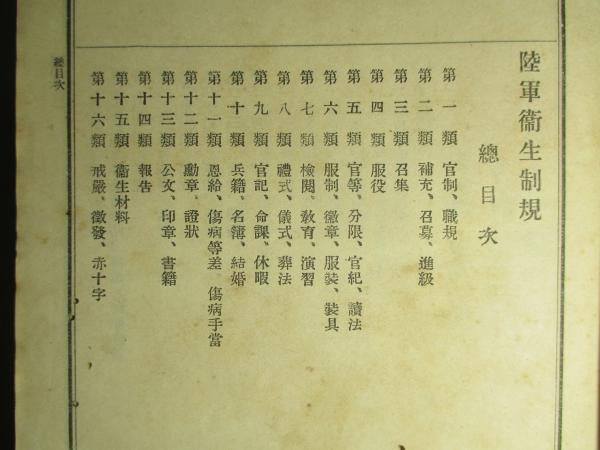 陸軍衞生制規
總目次
第一類 官制、職規
第二類 補充、召募、進級
第三類 召集
第四類 服役
第五類 官等、分限、官紀、讀法
第六類 服制、徽章、服裝、裝具
第七類 檢閱、教育、演習
第八類 禮式、儀式、葬法
第九類 官記、命課、休暇
第十類 兵籍、名簿、結婚
第十一類 恩給、傷病等差、傷病手當
第十二類 勳章、證狀
第十三類 公文、印章、書籍
第十四類 報告
第十五類 衞生材料
第十六類 戒嚴、徵發、赤十字
總目次